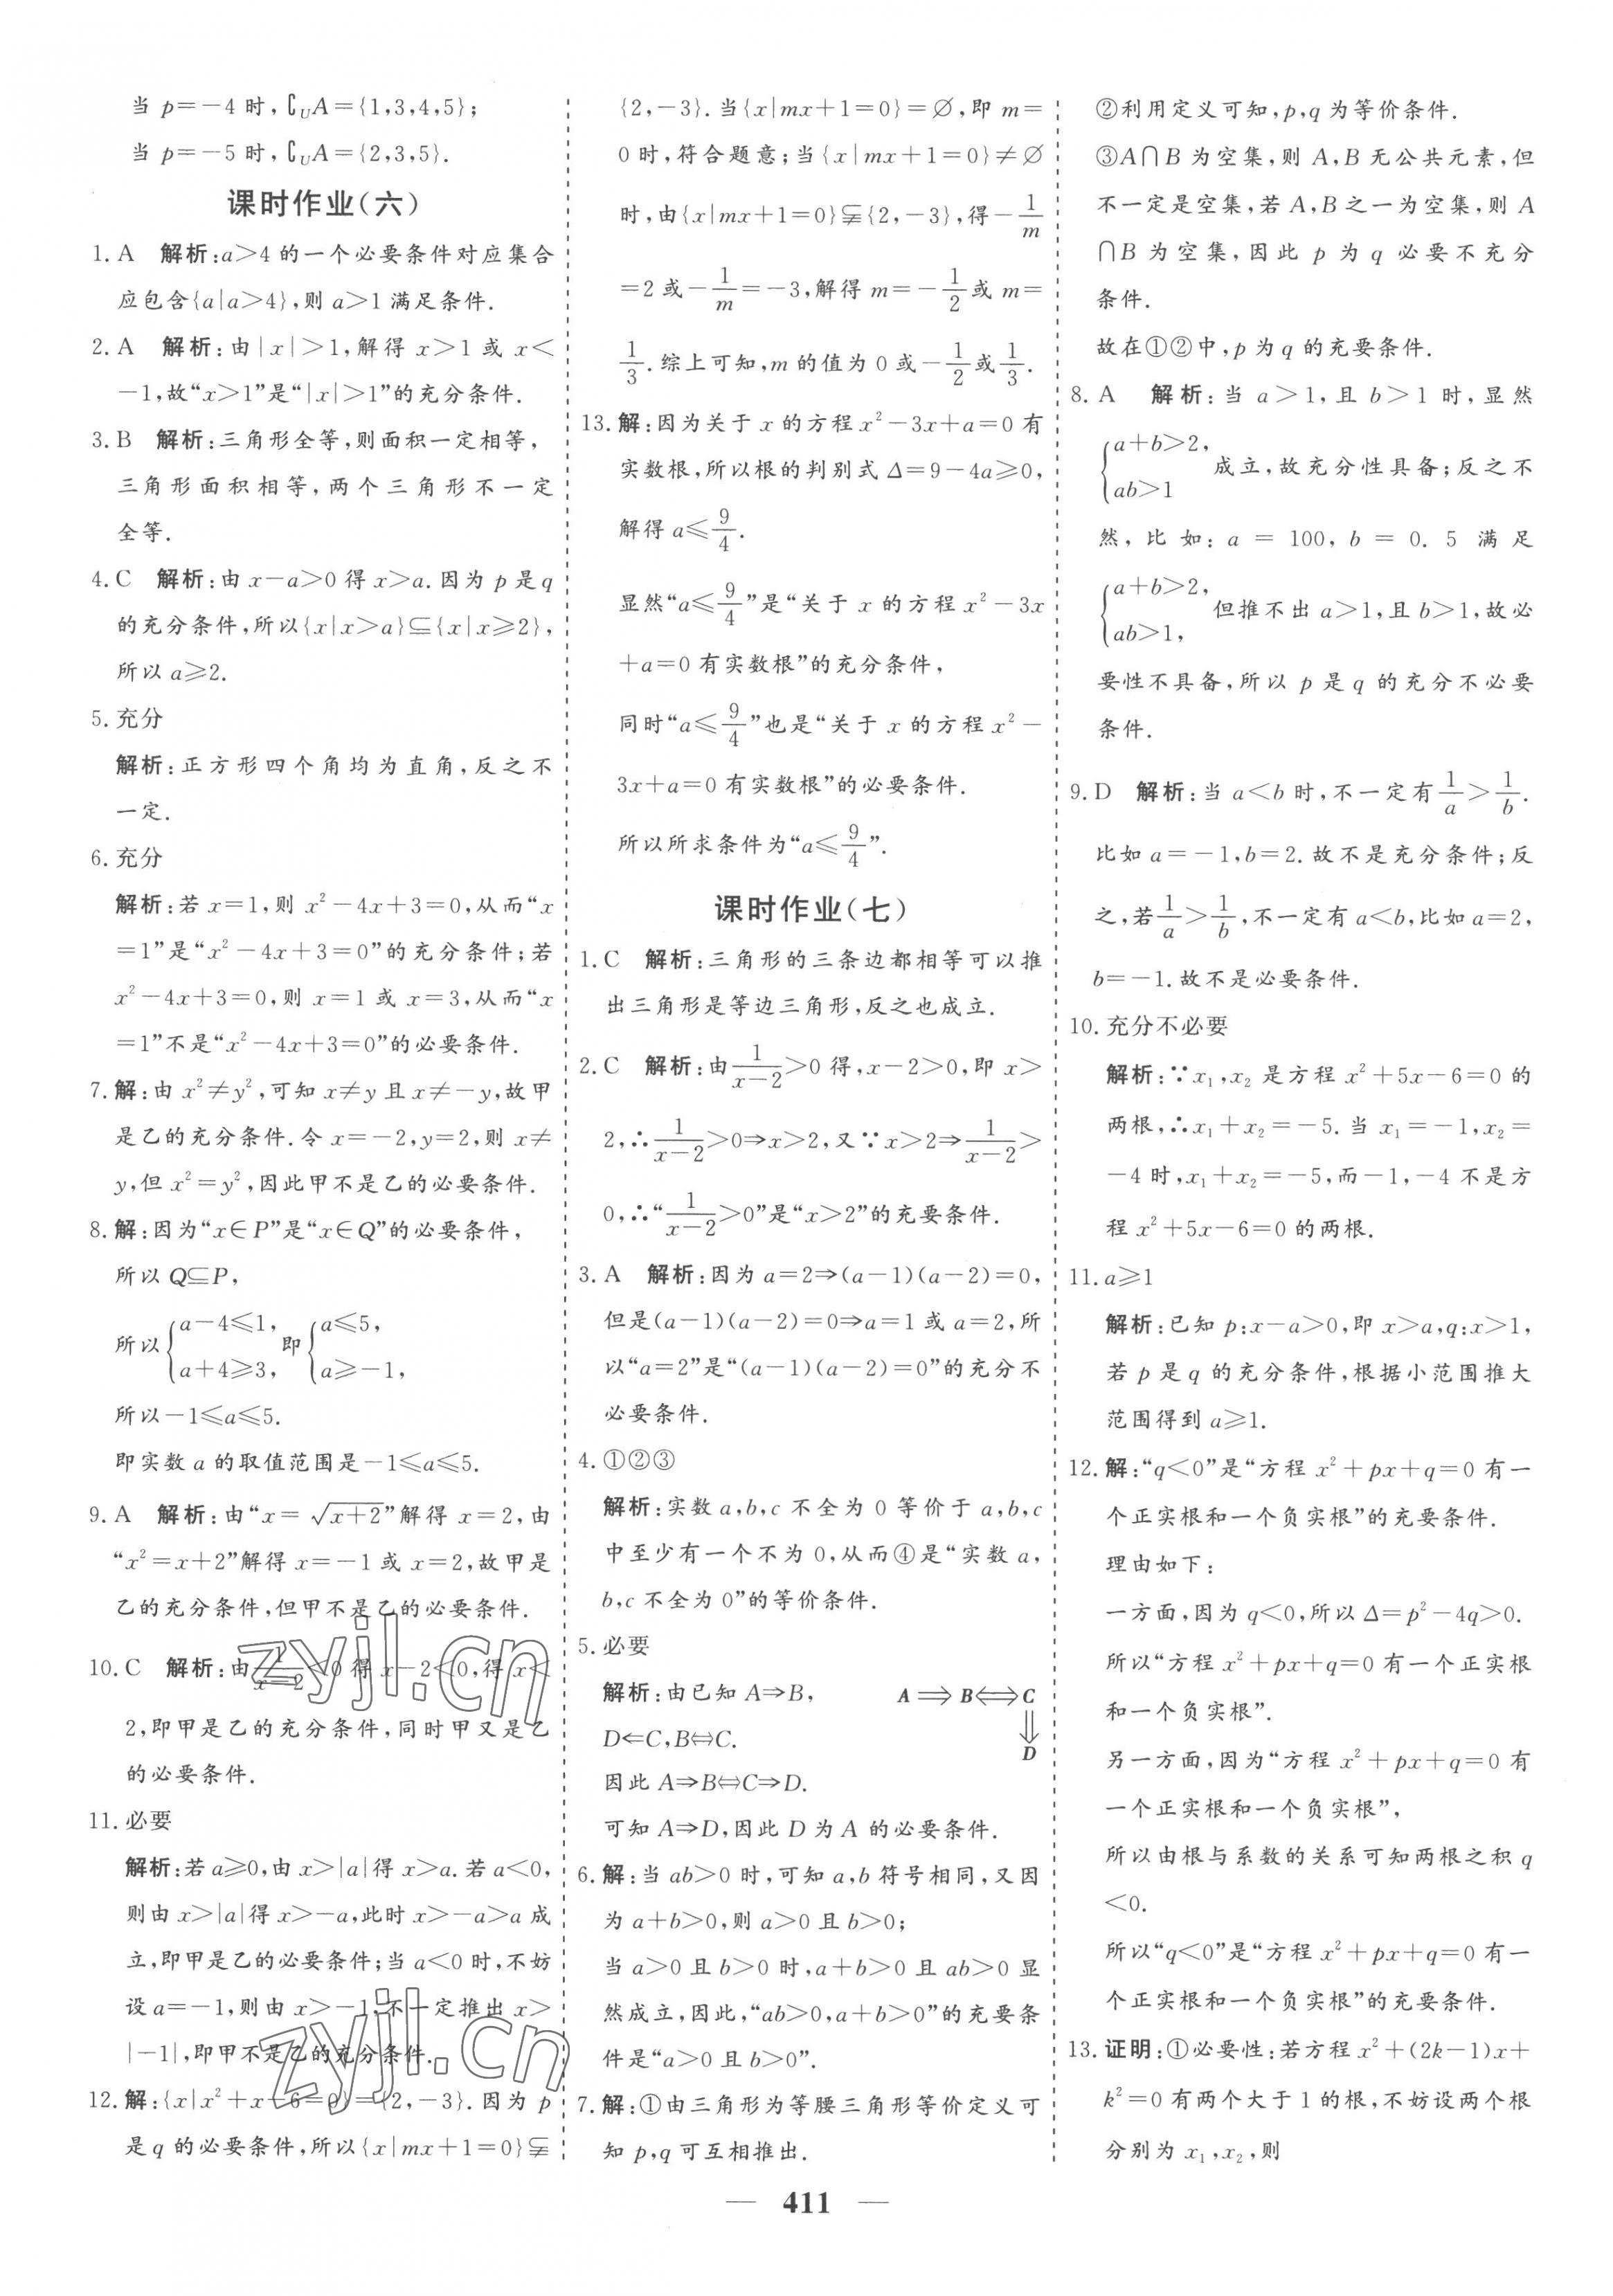 当 p=-4 时,∁UA={1,3,4,5};
当 p=-5 时,∁UA={2,3,5}.
课时作业(六)
1. A 解析:a>4 的一个必要条件对应集合
应包含{a|a>4},则 a>1 满足条件.
2. A 解析:由|x|>1,解得 x>1 或 x<
-1,故“x>1”是“|x|>1”的充分条件.
3. B 解析:三角形全等,则面积一定相等,
三角形面积相等,两个三角形不一定
全等.
4. C 解析:由 x-a>0 得 x>a.因为 p 是 q
的充分条件,所以{x|x>a}⊆{x|x≥2},
所以 a≥2.
5. 充分
解析:正方形四个角均为直角,反之不
一定.
6. 充分
解析:若 x=1,则 x²-4x+3=0,从而“x
=1”是“x²-4x+3=0”的充分条件;若
x²-4x+3=0,则 x=1 或 x=3,从而“x
=1”不是“x²-4x+3=0”的必要条件.
7. 解:由 x²≠y²,可知 x≠y 且 x≠-y,故甲
是乙的充分条件.令 x=-2,y=2,则 x≠
y,但 x²=y²,因此甲不是乙的必要条件.
8. 解:因为“x∈P”是“x∈Q”的必要条件,
所以 Q⊆P,
所以{a-4≤1, a+4≥3, 即{a≤5, a≥-1,
所以-1≤a≤5.
即实数 a 的取值范围是-1≤a≤5.
9. A 解析:由“x=√(x+2)”解得 x=2,由
“x²=x+2”解得 x=-1 或 x=2,故甲是
乙的充分条件,但甲不是乙的必要条件.
10. C 解析:由1/(x-2)<0 得 x-2<0,得 x<
2,即甲是乙的充分条件,同时甲又是乙
的必要条件.
11. 必要
解析:若 a≥0,由 x>|a|得 x>a.若 a<0,
则由 x>|a|得 x>-a,此时 x>-a>a 成
立,即甲是乙的必要条件;当 a<0 时,不妨
设 a=-1,则由 x>-1,不一定推出 x>
|-1|,即甲不是乙的充分条件.
12. 解:{x|x²+x-6=0}={2,-3}.因为 p
是 q 的必要条件,所以{x|mx+1=0}⫋
{2,-3}.当{x|mx+1=0}=∅,即 m=
0 时,符合题意;当{x|mx+1=0}≠∅
时,由{x|mx+1=0}⫋{2,-3},得-1/m
=2 或-1/m=-3,解得 m=-1/2或 m=
1/3.综上可知,m 的值为 0 或-1/2或1/3.
13. 解:因为关于 x 的方程 x²-3x+a=0 有
实数根,所以根的判别式 Δ=9-4a≥0,
解得 a≤9/4.
显然“a≤9/4”是“关于 x 的方程 x²-3x
+a=0 有实数根”的充分条件,
同时“a≤9/4”也是“关于 x 的方程 x²-
3x+a=0 有实数根”的必要条件.
所以所求条件为“a≤9/4”.
课时作业(七)
1. C 解析:三角形的三条边都相等可以推
出三角形是等边三角形,反之也成立.
2. C 解析:由1/(x-2)>0 得,x-2>0,即 x>
2,∴1/(x-2)>0⇒x>2,又∵x>2⇒1/(x-2)>
0,∴“1/(x-2)>0”是“x>2”的充要条件.
3. A 解析:因为 a=2⇒(a-1)(a-2)=0,
但是(a-1)(a-2)=0⇒a=1 或 a=2,所
以“a=2”是“(a-1)(a-2)=0”的充分不
必要条件.
4. ①②③
解析:实数 a,b,c 不全为 0 等价于 a,b,c
中至少有一个不为 0,从而④是“实数 a,
b,c 不全为 0”的等价条件.
5. 必要
解析:由已知 A⇒B, A⟹B⟺C
D⇐C,B⇔C. ⇓ D
因此 A⇒B⇔C⇒D.
可知 A⇒D,因此 D 为 A 的必要条件.
6. 解:当 ab>0 时,可知 a,b 符号相同,又因
为 a+b>0,则 a>0 且 b>0;
当 a>0 且 b>0 时,a+b>0 且 ab>0 显
然成立,因此,“ab>0,a+b>0”的充要条
件是“a>0 且 b>0”.
7. 解:①由三角形为等腰三角形等价定义可
知 p,q 可互相推出.
②利用定义可知,p,q 为等价条件.
③A∩B 为空集,则 A,B 无公共元素,但
不一定是空集,若 A,B 之一为空集,则 A
∩B 为空集,因此 p 为 q 必要不充分
条件.
故在①②中,p 为 q 的充要条件.
8. A 解析:当 a>1,且 b>1 时,显然
{a+b>2, ab>1 成立,故充分性具备;反之不
然,比如:a=100,b=0.5 满足
{a+b>2, ab>1, 但推不出 a>1,且 b>1,故必
要性不具备,所以 p 是 q 的充分不必要
条件.
9. D 解析:当 a<b 时,不一定有1/a>1/b.
比如 a=-1,b=2.故不是充分条件;反
之,若1/a>1/b,不一定有 a<b,比如 a=2,
b=-1.故不是必要条件.
10. 充分不必要
解析:∵x₁,x₂ 是方程 x²+5x-6=0 的
两根,∴x₁+x₂=-5.当 x₁=-1,x₂=
-4 时,x₁+x₂=-5,而-1,-4 不是方
程 x²+5x-6=0 的两根.
11. a≥1
解析:已知 p:x-a>0,即 x>a,q:x>1,
若 p 是 q 的充分条件,根据小范围推大
范围得到 a≥1.
12. 解:“q<0”是“方程 x²+px+q=0 有一
个正实根和一个负实根”的充要条件.
理由如下:
一方面,因为 q<0,所以 Δ=p²-4q>0.
所以“方程 x²+px+q=0 有一个正实根
和一个负实根”.
另一方面,因为“方程 x²+px+q=0 有
一个正实根和一个负实根”,
所以由根与系数的关系可知两根之积 q
<0.
所以“q<0”是“方程 x²+px+q=0 有一
个正实根和一个负实根”的充要条件.
13. 证明:①必要性:若方程 x²+(2k-1)x+
k²=0 有两个大于 1 的根,不妨设两个根
分别为 x₁,x₂,则
— 411 —
zyjl.cn
zyjl.cn